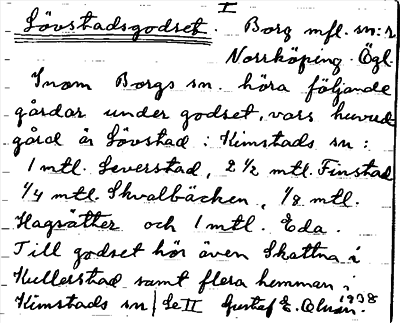 I
Lövstadsgodset. Borg mfl. sn:r
Norrköping. Ögl.
Inom Borgs sn. höra följande
gårdar under godset, vars huvud
gård är Lövstad: Kimstads sn:
1 mtl. Leverstad, 2 1/2 mtl. Finstad
1/4 mtl. Skvalbäcken, 1/8 mtl.
Hagsätter och 1 mtl. Eda.
Till godset hör även Skattna i
Kullerstad samt flera hemman i
Kimstads sn | Se II Gustaf E. Olsson. 1938